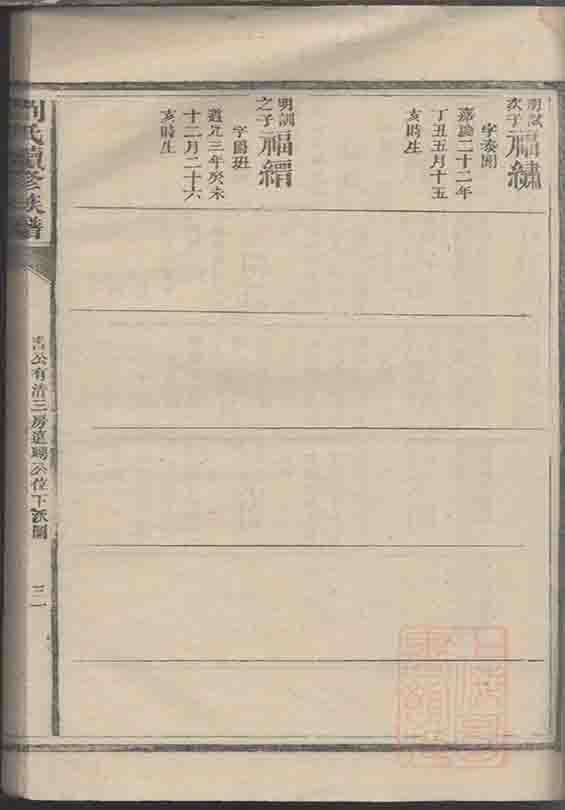 次子福繡
字奏閣
嘉慶二十二年
丁丑五月十五
亥時生
明訓
之子福縉
字爵班
道光三年癸未
十二月二十六
亥時生
劉氏續修族譜
公有清三房這聰公位下派圖